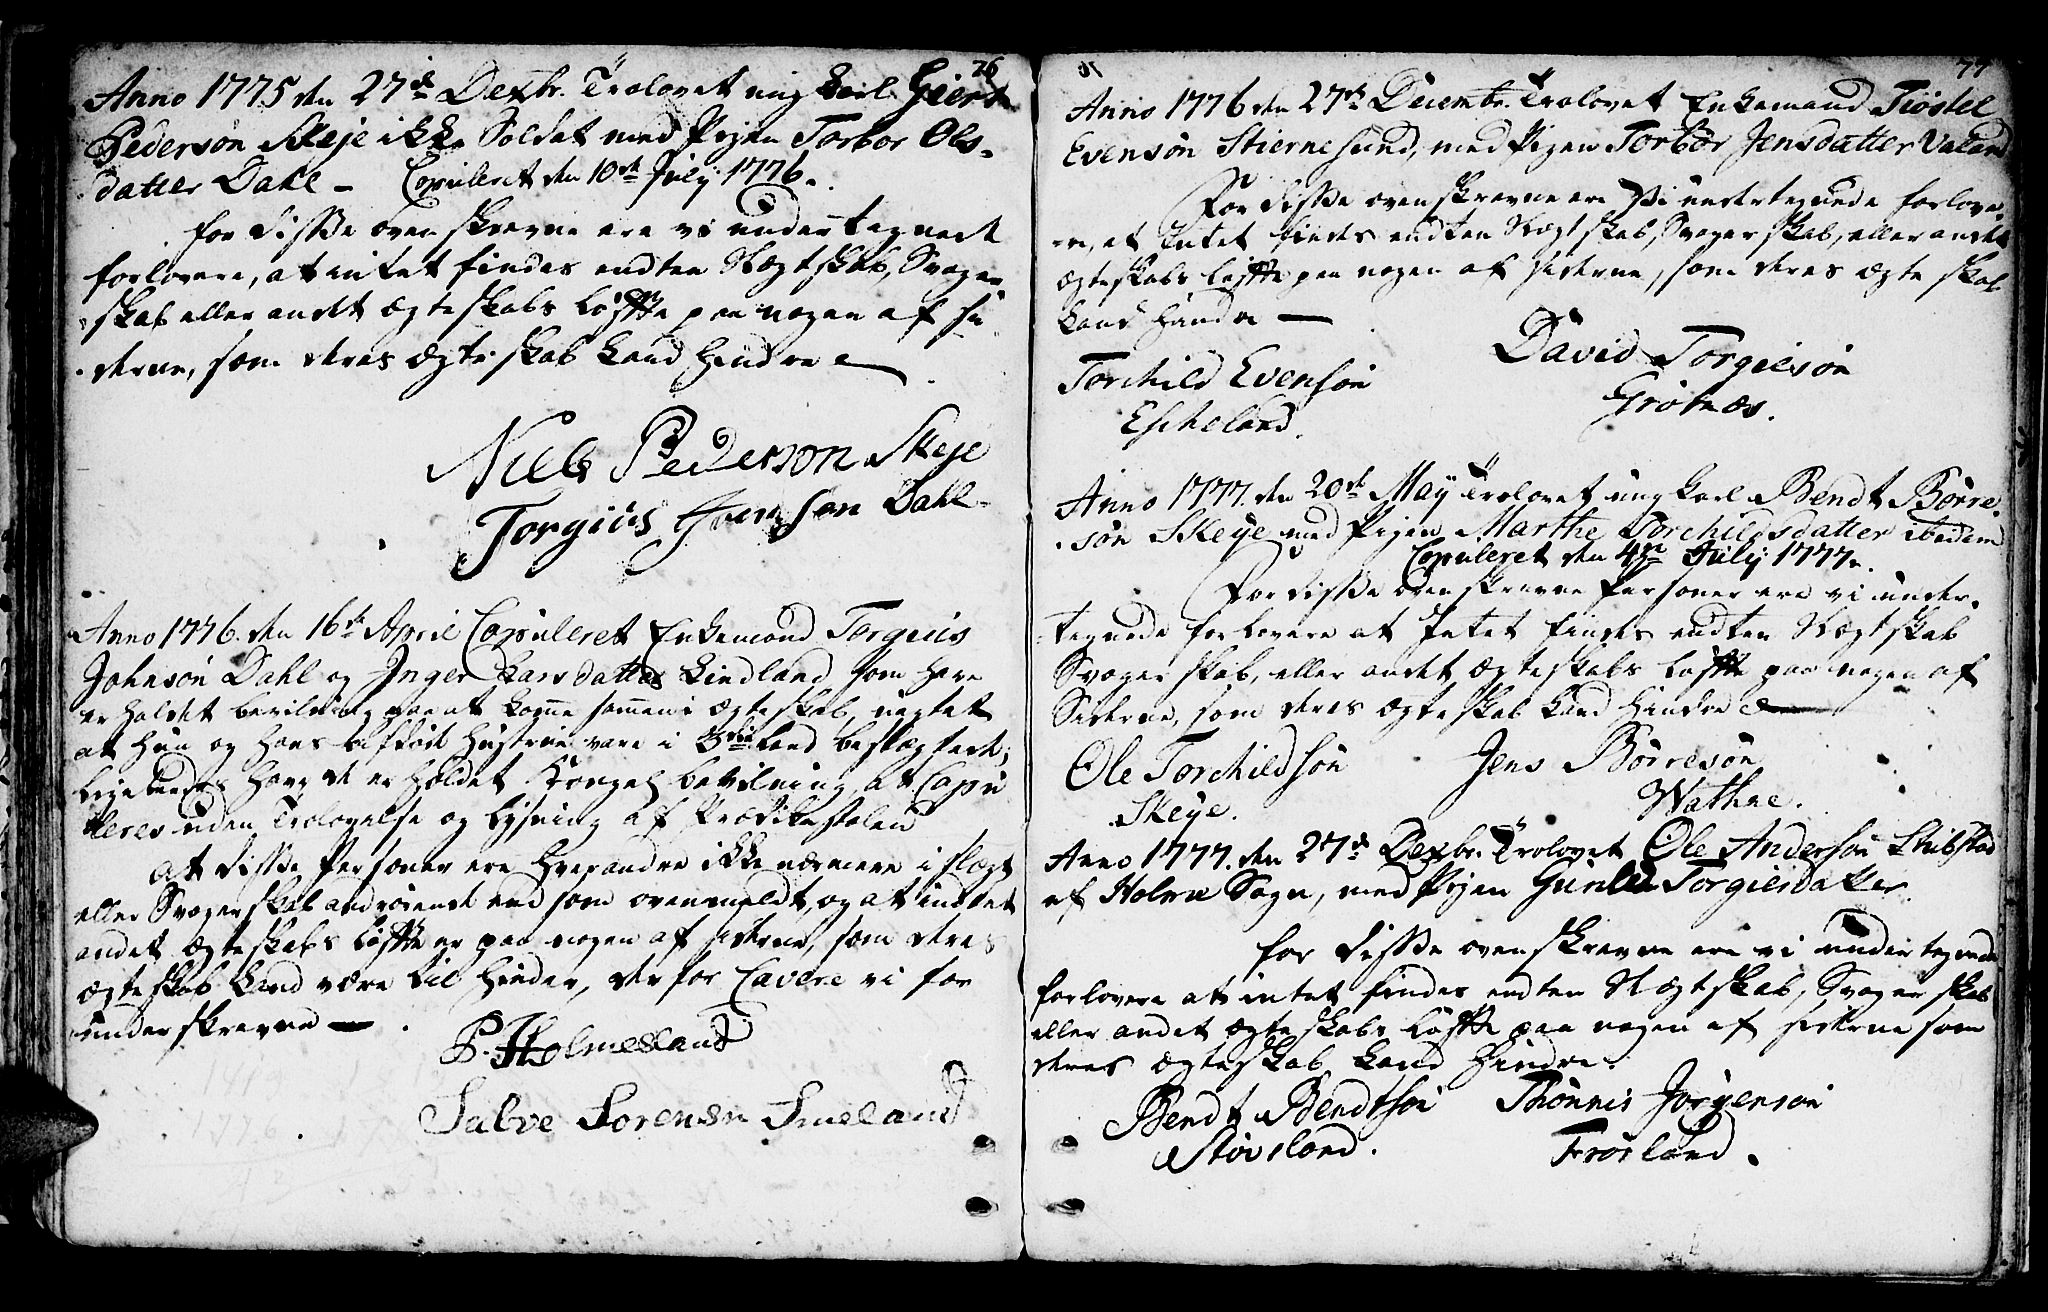 76
Anno 1775 den 27de Dexbr. Trolovet ung Carl Giert
Pedersøn Skeje ikke Soldat med Pigen Torbor Ols-
datter Dahl - Copuleret den 10de July 1776.
for disse oven skrevne ere vi under tegnede
forlovere, at intet findes endten Slægtskab, Svoger
skab eller andet Ægteskabs Løffte paa nogen af Si
derne, som deres Ægte skab kand hindre
Niels Pederson Skeje
Torgius Jonson Dahl
Anno 1776. den 16de April Copuleret Enkemand Torgius
Johnsøn Dahl og Inger Larsdatter Lindland som have
erholdet bevilning paa at komme sammen i Ægteskab, uagtet
at hun og hans afdøde Hustrue vare i 3die Leed beslægtede,
ligeledes have de erholdet Kongel bevilning, at Copu
leres uden Trolovelse og Lysning af Prædikestolen
At disse Personer ere hverandre ikke nærmere i Slægt
eller Svogerskab andrørende end som ovenmeldt, og at intet
andet Ægteskabs Løffte er paa nogen af siderne, som deres
Ægteskab kand være til hinder, derfor Cavere vi for
underskrevne
P. Holmesland
Salve Sorensn Smeland
77
Anno 1776 den 27de Decembr. Trolovet Enkemand Tiøstel
Evensøn Stiernesund, med Pigen Torbor Jensdatter Valand
For disse ovenskrevne ere Vi undertegnede forlove-
re, at Intet findes endten Slægtskab, Svogerskab, eller andet
Ægteskabs Løffte paa nogen af siderne, som deres Ægte skab
kand hindre
Torchild Evensøn
Escheland.
David Torgiesøn
Grøtnæs.
Anno 1777. den 20de May Trolovet ung Karl Bendt Børre-
søn Skeye med Pigen Marthe Torchildsdatter ibidem
Copuleret den 4de July 1777.
For disse ovenskrevne Personer ere vi under-
tegnede forlovere at Intet findes endten Slægtskab
Svogerskab, eller andet Ægteskabs Løffte paa nogen af
Siderne, som deres Ægteskab kand hindre
Ole Torchildsøn
Skeye.
Jens Børresøn
Wathne.
Anno 1777. den 27de Dexbr. Trolovet Ole Andersøn Stubstad
af Holme Sogn, med Pigen Gunild Torgiesdatter.
for disse ovenskrevne ere vi undertegnede
forlovere at intet findes endten Slægtskab, Svogerskab
eller andet Ægteskabs Løffte paa nogen af siderne som
deres Ægteskab kand hindre.
Bendt Bendtsøn
Støvsland.
Thønnis Jørgensøn
Frøsland.